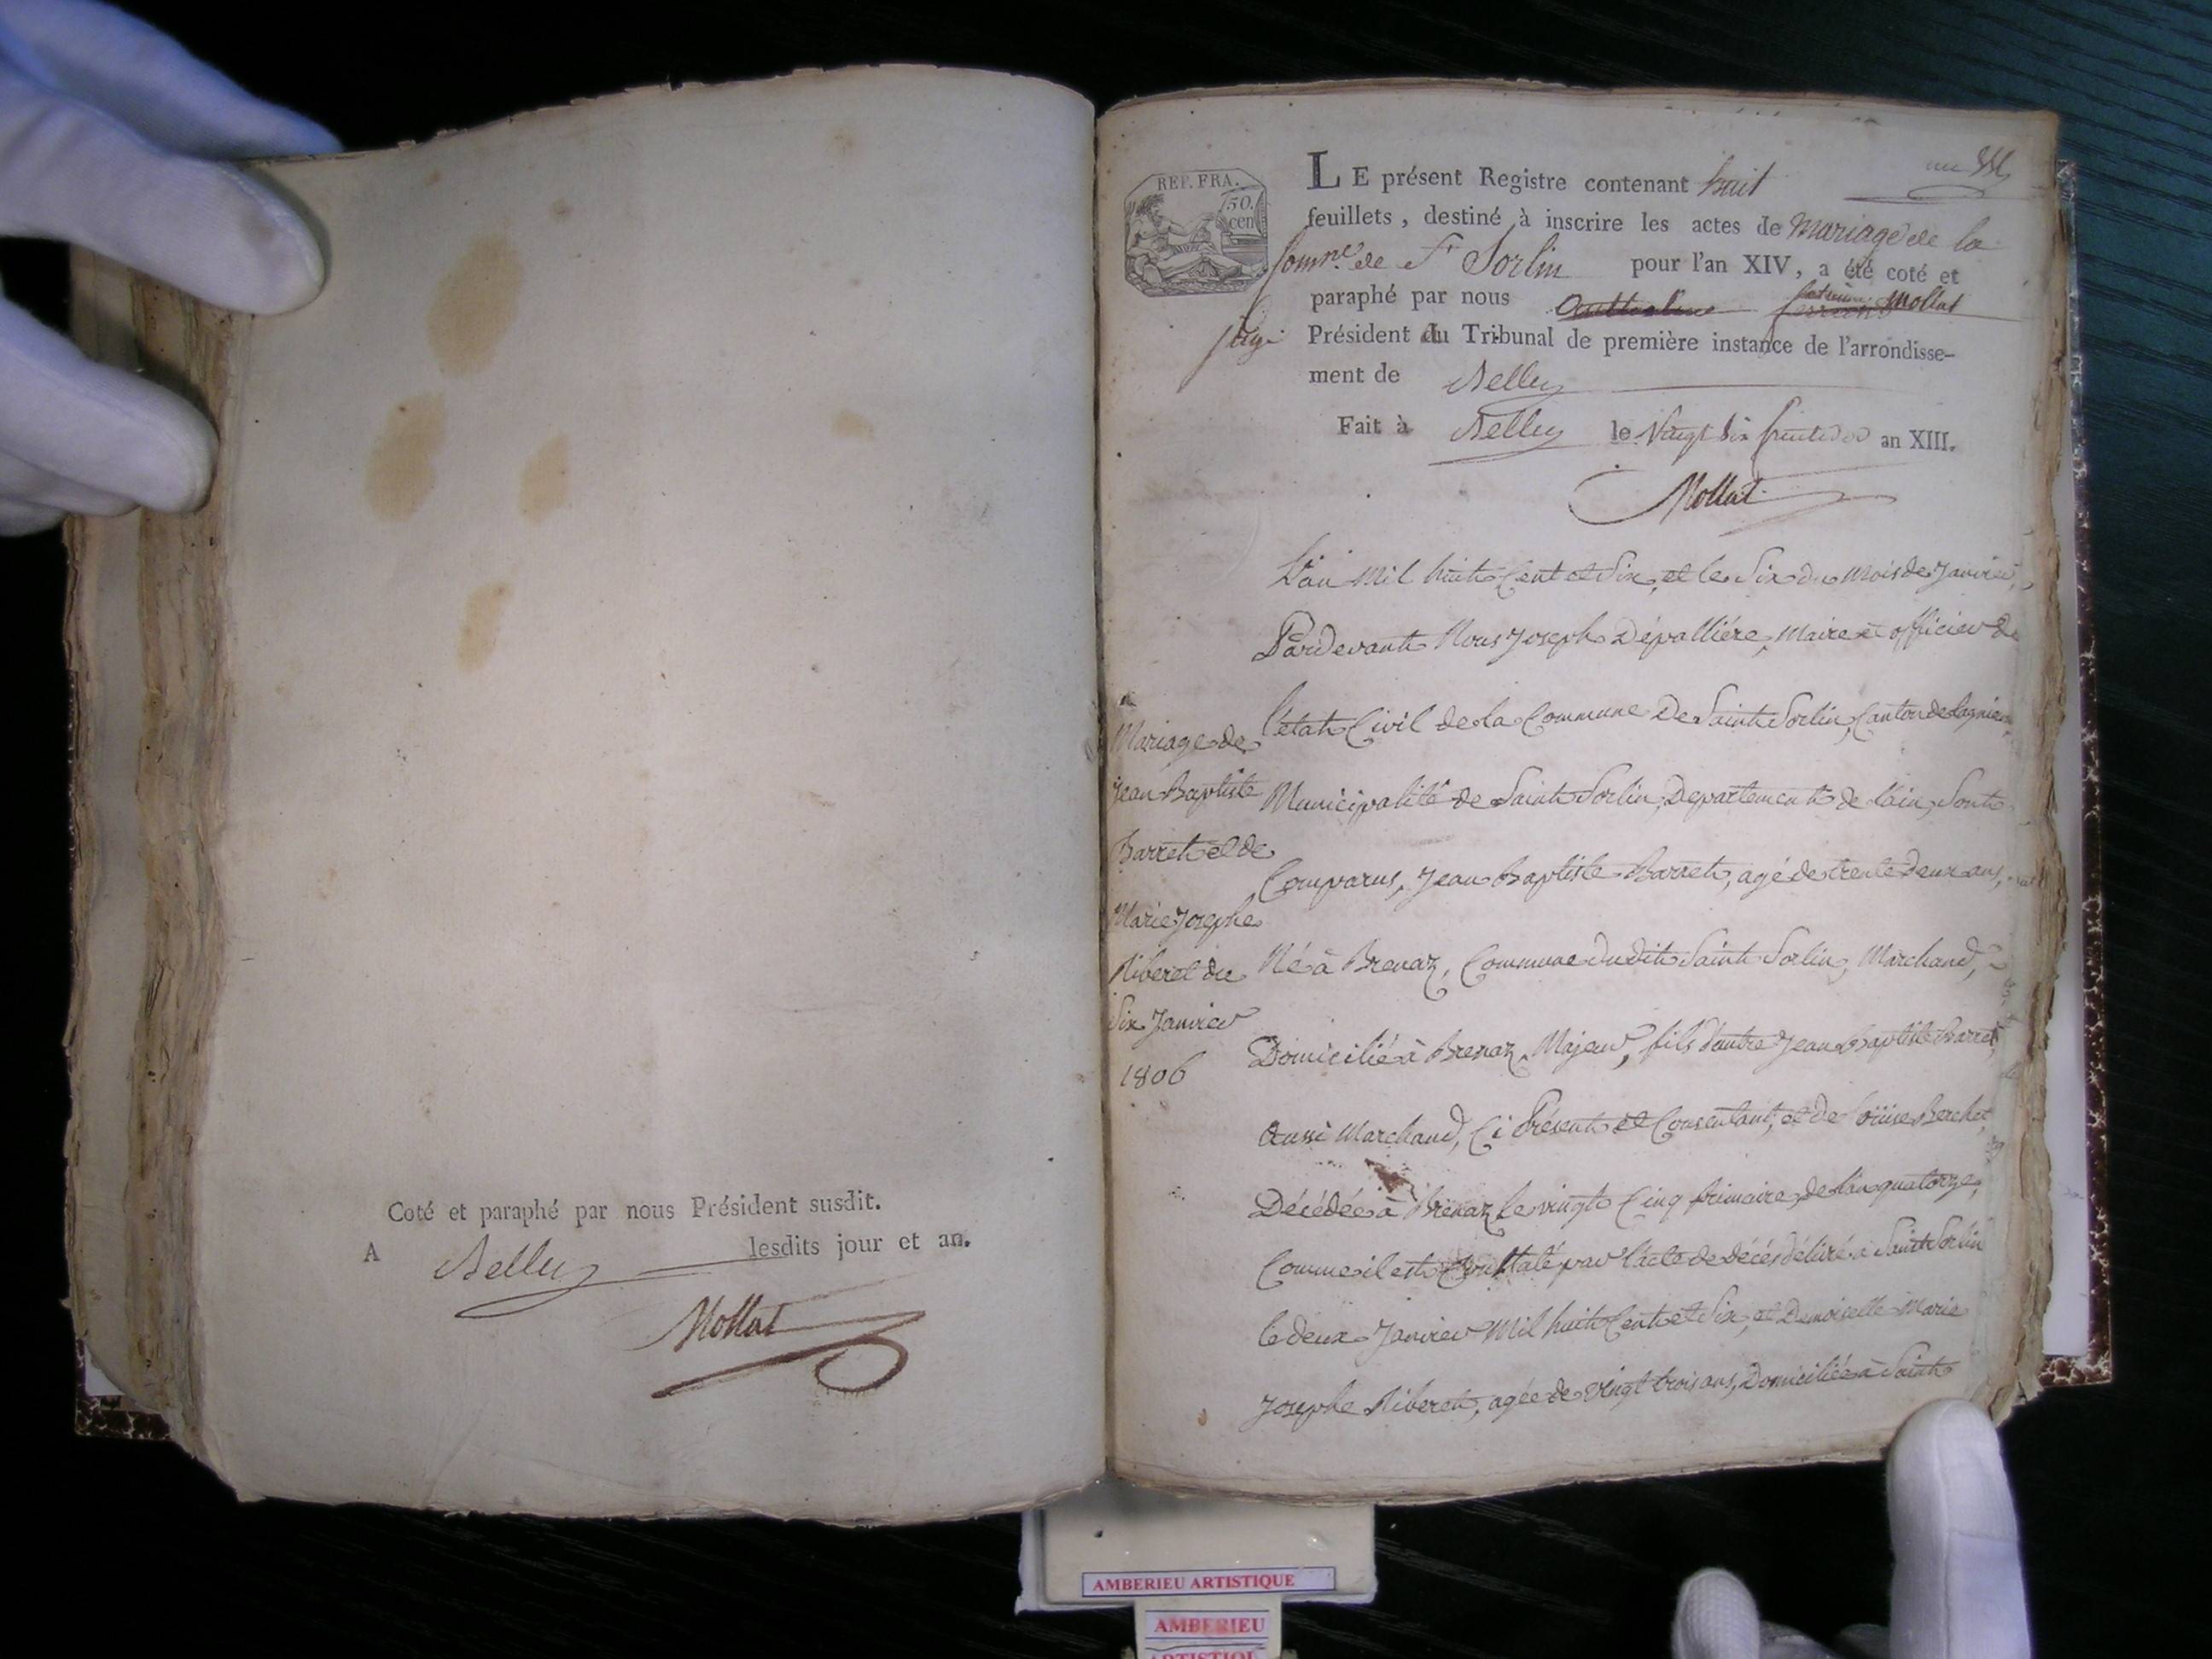 Coté et paraphé par nous Président susdit.
A Belley lesdits jour et an.
Mollat
REP. FRA.
50.
cen
LE présent Registre contenant huit
feuillets, destiné à inscrire les actes de Mariage de la
Comne. de St Sorlin pour l'an XIV, a été coté et
paraphé par nous Mollat
juge Président du Tribunal de première instance de l'arrondisse-
ment de Belley
Fait à Belley le Vingt Six fructidor an XIII.
Mollat
Mariage de
Jean Baptiste
Barret et de
Marie Josephe
Riberet du
Six Janvier
1806
L'an Mil huit Cent et Six, et le Six du Mois de Janvier,
Pardevant Nous Joseph Dépalliére, Maire et officier de
l'état Civil de la Commune De Saint Sorlin, Canton de Lagnieu,
Municipalité de Saint Sorlin, Departement de l'ain, Sont
Comparus, Jean Baptiste Barret, agé de trente deux ans,
Né à Brenaz, Commune dudit Saint Sorlin, Marchand,
Domicilié à Brenaz, Majeur, fils d'autre Jean Baptiste Barret,
Aussi Marchand, Ci Présent et Consentant, et de Loüise Berchet,
Décédée à Brenaz le vingt Cinq frimaire, de l'an quatorze,
Comme il est Constaté par l'acte de décés délivré à Saint Sorlin
le deux Janvier Mil huit Cent et Six, et Demoiselle Marie
Josephe Riberet, agée de vingt trois ans, Domiciliée à Saint
AMBERIEU ARTISTIQUE
AMBERIEU
ARTISTIQUE